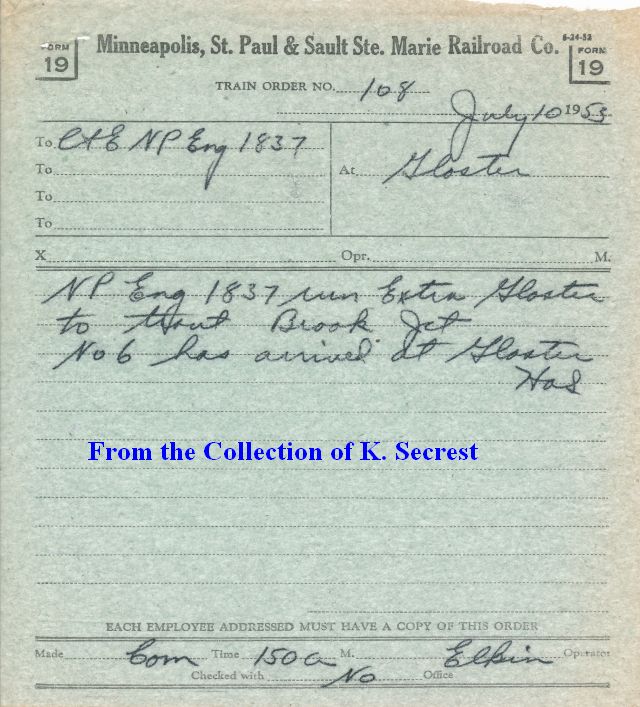 FORM 19
Minneapolis, St. Paul & Sault Ste. Marie Railroad Co.
6-24-52
FORM 19
TRAIN ORDER NO. 108
July 10 1953
To C&E NP Eng 1837
To
At Gloster
To
To
X Opr. M.
NP Eng 1837 run Extra Gloster
to Trout Brook Jct
No 6 has arrived at Gloster
From the Collection of K. Secrest
EACH EMPLOYEE ADDRESSED MUST HAVE A COPY OF THIS ORDER
Made Com Time 150a M. Elkin Operator
Checked with No Office